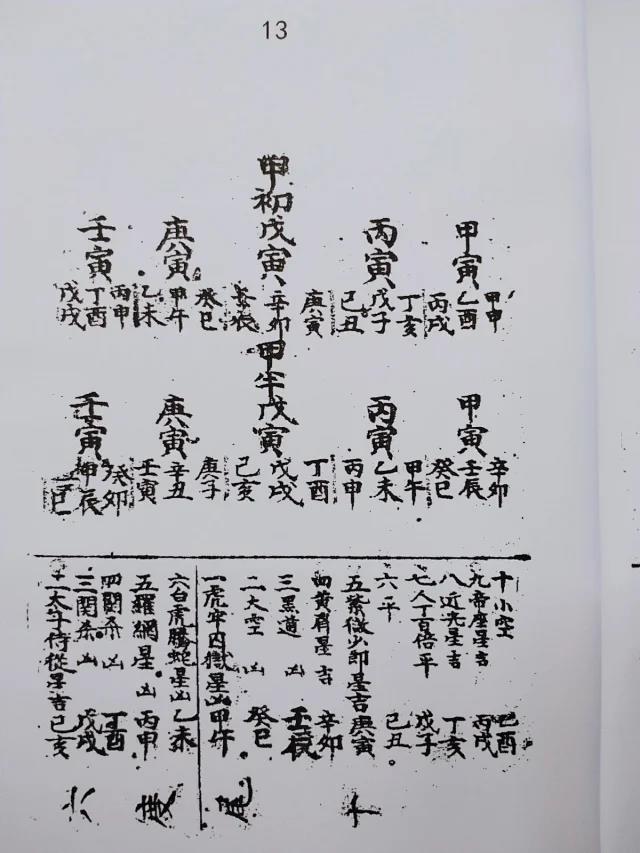 13
甲寅
甲申
乙酉
丙戌
丙寅
丁亥
戊子
己丑
甲初戊寅
庚寅
辛卯
庚寅
癸巳
甲午
乙未
壬寅
丙申
丁酉
戊戌
甲寅
辛卯
壬辰
癸巳
丙寅
甲午
乙未
丙申
甲半戊寅
丁酉
戊戌
己亥
庚寅
庚子
辛丑
壬寅
壬寅
癸卯
甲辰
十小空 酉
九帝座星吉 丙戌
八近光星吉 丁亥
七人丁百倍平 戊子
六平 己丑。
五紫微少郎星吉 庚寅
四黄星吉 辛卯
三黑道 凶 壬辰
二大空 凶 癸巳
一虎牢囚獄星凶 甲午
六白虎騰蛇星凶 乙未
五羅網星凶 丙申
四關杀凶 丁酉
三関杀凶 戊戌
二太子侍從星吉 己亥
十
尾
度
六